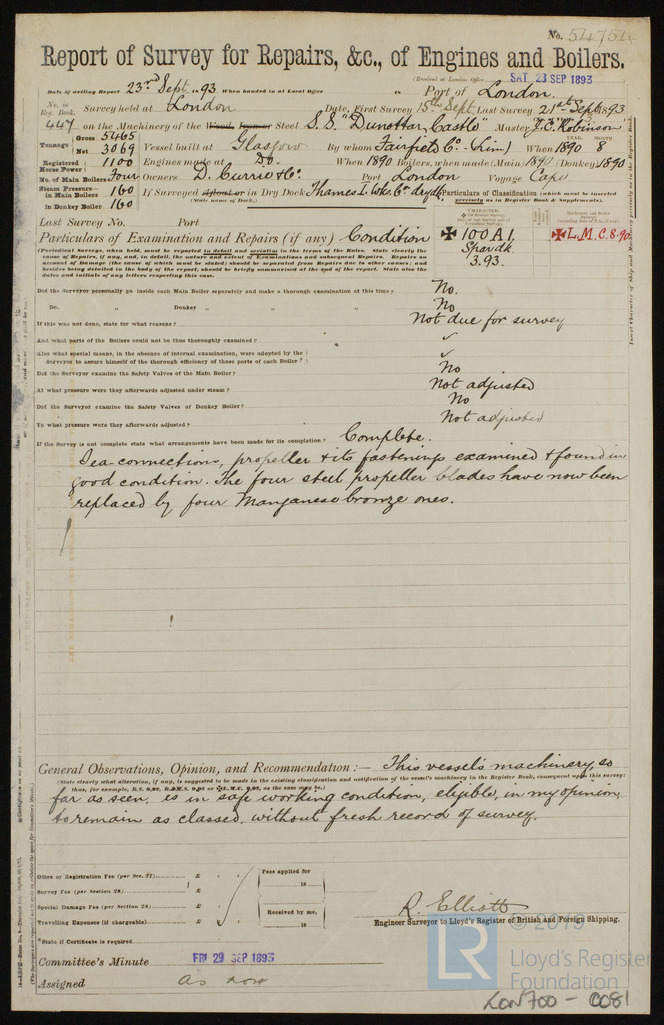 No. 54754
Report of Survey for Repairs, &c., of Engines and Boilers.
(Received at London Office SAT. 23 SEP 1893
Date of writing Report 23rd Sept. 1893 When handed in at Local Office 18 Port of London.
No. in Reg. Book. Survey held at London Date, First Survey 15th Sept. Last Survey 21st Sept 1893
447 on the Machinery of the Wood, Iron or Steel S.S. "Dunottar Castle" Master J.C. Robinson
Tonnage Gross 5465
Net 3069 Vessel built at Glasgow By whom Fairfield Co. (Lim) When 1890 8
YEAR. MONTH.
Registered Horse Power 1100 Engines made at Do. When 1890 Boilers, when made (Main) 1890 (Donkey) 1890
No. of Main Boilers Four Owners D. Currie & Co. Port London Voyage Cape
Steam Pressure in Main Boilers 160 If Surveyed Afloat or in Dry Dock Thames I. Wks. Co. dry dk. Particulars of Classification (which must be inserted precisely as in Register Book & Supplements).
(State name of Dock.)
in Donkey Boiler 160
Last Survey No. Port
CHARACTER.
Particulars of Examination and Repairs (if any) Condition ✠ 100A1. ✠ L.M.C. 8.90
Spar dk.
3.93.
(Periodical Surveys, when held, must be reported in detail and seriatim in the terms of the Rules. State clearly the
cause of Repairs, if any, and, in detail, the nature and extent of Examinations and subsequent Repairs. Repairs on
account of Damage (the cause of which must be stated) should be separated from Repairs due to other causes; and
besides being detailed in the body of the report, should be briefly summarised at the end of the report. State also the
dates and initials of any letters respecting this case.
Did the Surveyor personally go inside each Main Boiler separately and make a thorough examination at this time? No.
Do. " Donkey " " " No
If this was not done, state for what reasons? Not due for survey
And what parts of the Boilers could not be thus thoroughly examined? ✓
Also what special means, in the absence of internal examination, were adopted by the
Surveyor to assure himself of the thorough efficiency of those parts of each Boiler? ✓
Did the Surveyor examine the Safety Valves of the Main Boiler? No
At what pressure were they afterwards adjusted under steam? Not adjusted
Did the Surveyor examine the Safety Valves of Donkey Boiler? No
To what pressure were they afterwards adjusted? Not adjusted
If the Survey is not complete state what arrangements have been made for its completion? Complete.
Sea-connections, propeller & its fastenings examined & found in
good condition. The four steel propeller blades have now been
replaced by four Manganese bronze ones.
General Observations, Opinion, and Recommendation:— This vessel's machinery, so
(State clearly what alteration, if any, is suggested to be made in the existing classification and notification of the vessel's machinery in the Register Book, consequent upon this survey;
thus, for example, B.S. 9,92, B.&M.S. 9,92 or ✠L.M.C. 9,92, as the case may be.)
far as seen, is in safe working condition, eligible, in my opinion,
to remain as classed, without fresh record of survey.
Office or Registration Fee (per Sec. 27) £
Fees applied for
18
Survey Fee (per Section 28) £
Special Damage Fee (per Section 28) £
Received by me,
18
Travelling Expenses (if chargeable) £
R. Elliott
Engineer Surveyor to Lloyd's Register of British and Foreign Shipping.
*State if Certificate is required
Committee's Minute FRI 29 SEP 1893
Assigned as now
LR © 2019
Lloyd's Register
Foundation
LON700 - 0081